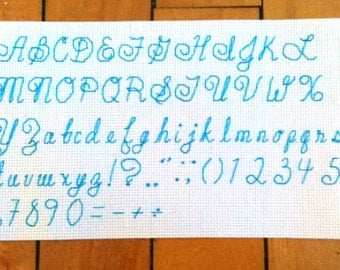 ABCDEFGHIJKL
MNOPQRSTUVWX
YZabcdefghijklmnopqrs
tuvwxyz!?..":;,()12345
7890=-+÷